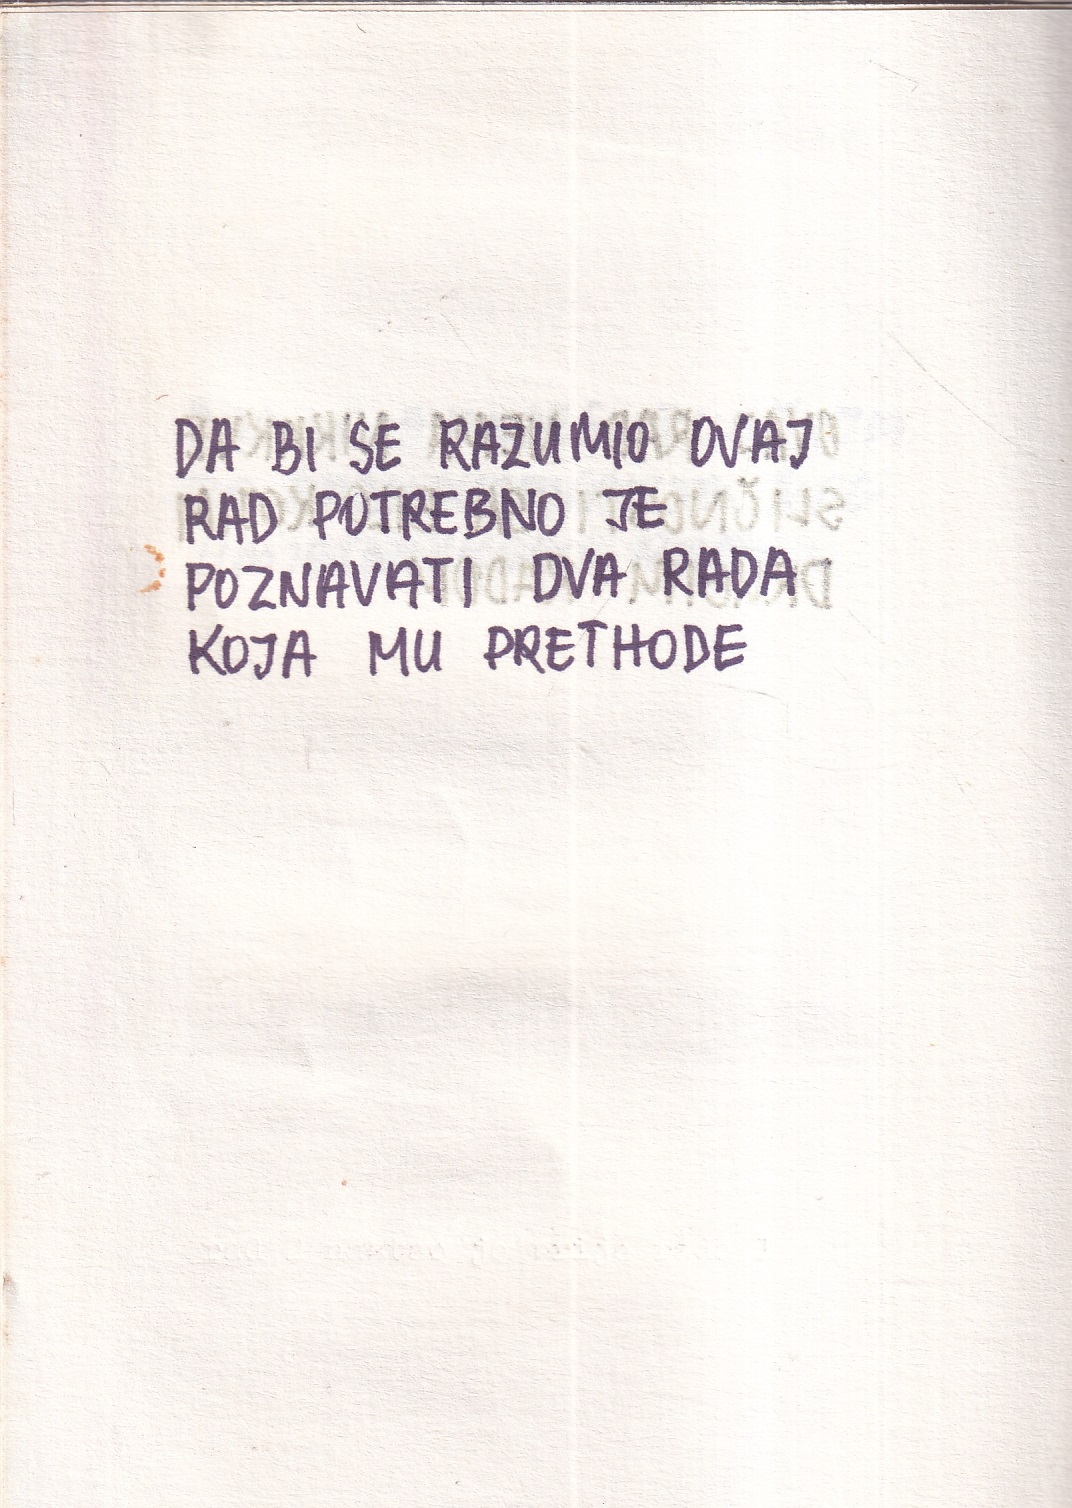 DA BI SE RAZUMIO OVAJ
RAD POTREBNO JE
POZNAVATI DVA RADA
KOJA MU PRETHODE